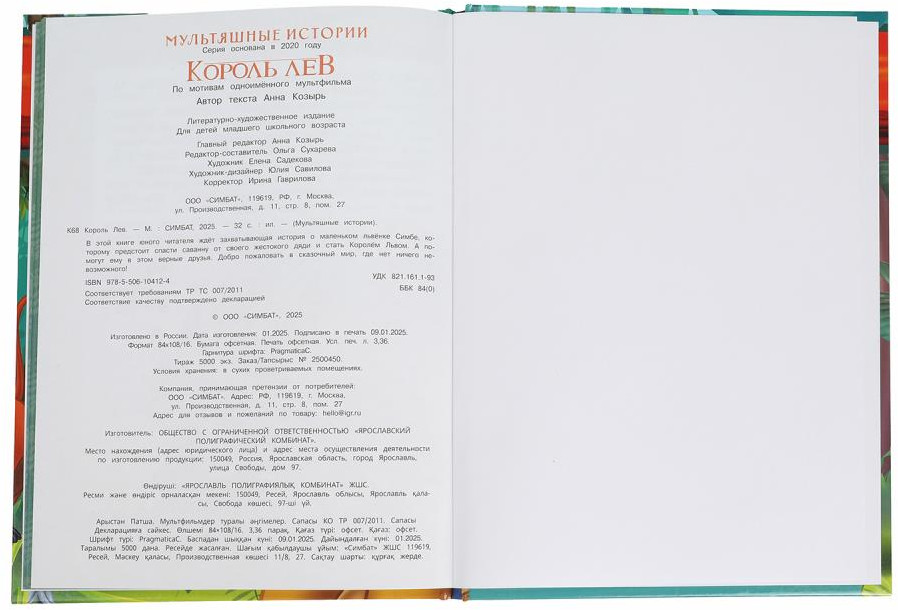 МУЛЬТЯШНЫЕ ИСТОРИИ
Серия основана в 2020 году
КОРОЛЬ ЛЕВ
По мотивам одноимённого мультфильма
Автор текста Анна Козырь
Литературно-художественное издание
Для детей младшего школьного возраста
Главный редактор Анна Козырь
Редактор-составитель Ольга Сухарева
Художник Елена Садекова
Художник-дизайнер Юлия Савилова
Корректор Ирина Гаврилова
ООО «СИМБАТ», 119619, РФ, г. Москва,
ул. Производственная, д. 11, стр. 8, пом. 27
К68 Король Лев. — М. : СИМБАТ, 2025. — 32 с. : ил. — (Мультяшные истории).
В этой книге юного читателя ждёт захватывающая история о маленьком львёнке Симбе, ко-
торому предстоит спасти саванну от своего жестокого дяди и стать Королём Львом. А по-
могут ему в этом верные друзья. Добро пожаловать в сказочный мир, где нет ничего не-
возможного!
ISBN 978-5-506-10412-4 УДК 821.161.1-93
Соответствует требованиям ТР ТС 007/2011 ББК 84(0)
Соответствие качеству подтверждено декларацией
© ООО «СИМБАТ», 2025
Изготовлено в России. Дата изготовления: 01.2025. Подписано в печать 09.01.2025.
Формат 84×108/16. Бумага офсетная. Печать офсетная. Усл. печ. л. 3,36.
Гарнитура шрифта: PragmaticaC.
Тираж 5000 экз. Заказ/Тапсырыс № 2500450.
Условия хранения: в сухих проветриваемых помещениях.
Компания, принимающая претензии от потребителей:
ООО «СИМБАТ». Адрес: РФ, 119619, г. Москва,
ул. Производственная, д. 11, стр. 8, пом. 27
Адрес для отзывов и пожеланий по товару: hello@igr.ru
Изготовитель: ОБЩЕСТВО С ОГРАНИЧЕННОЙ ОТВЕТСТВЕННОСТЬЮ «ЯРОСЛАВСКИЙ
ПОЛИГРАФИЧЕСКИЙ КОМБИНАТ».
Место нахождения (адрес юридического лица) и адрес места осуществления деятельности
по изготовлению продукции: 150049, Россия, Ярославская область, город Ярославль,
улица Свободы, дом 97.
Өндіруші: «ЯРОСЛАВЛЬ ПОЛИГРАФИЯЛЫҚ КОМБИНАТ» ЖШС.
Ресми және өндіріс орналасқан мекені: 150049, Ресей, Ярославль облысы, Ярославль қала-
сы, Свобода көшесі, 97-ші үй.
Арыстан Патша. Мультфильмдер туралы әңгімелер. Сапасы КО ТР 007/2011. Сапасы
Декларацияға сәйкес. Өлшемі 84×108/16. 3,36 парақ. Қағаз түрі: офсет. Қағаз: офсет.
Шрифт түрі: PragmaticaC. Баспадан шыққан күні: 09.01.2025. Дайындалған күні: 01.2025.
Таралымы 5000 дана. Ресейде жасалған. Шағым қабылдаушы ұйым: «Симбат» ЖШС 119619,
Ресей, Маскеу қаласы, Производственная көшесі 11/8, 27. Сақтау шарты: құрғақ жерде.